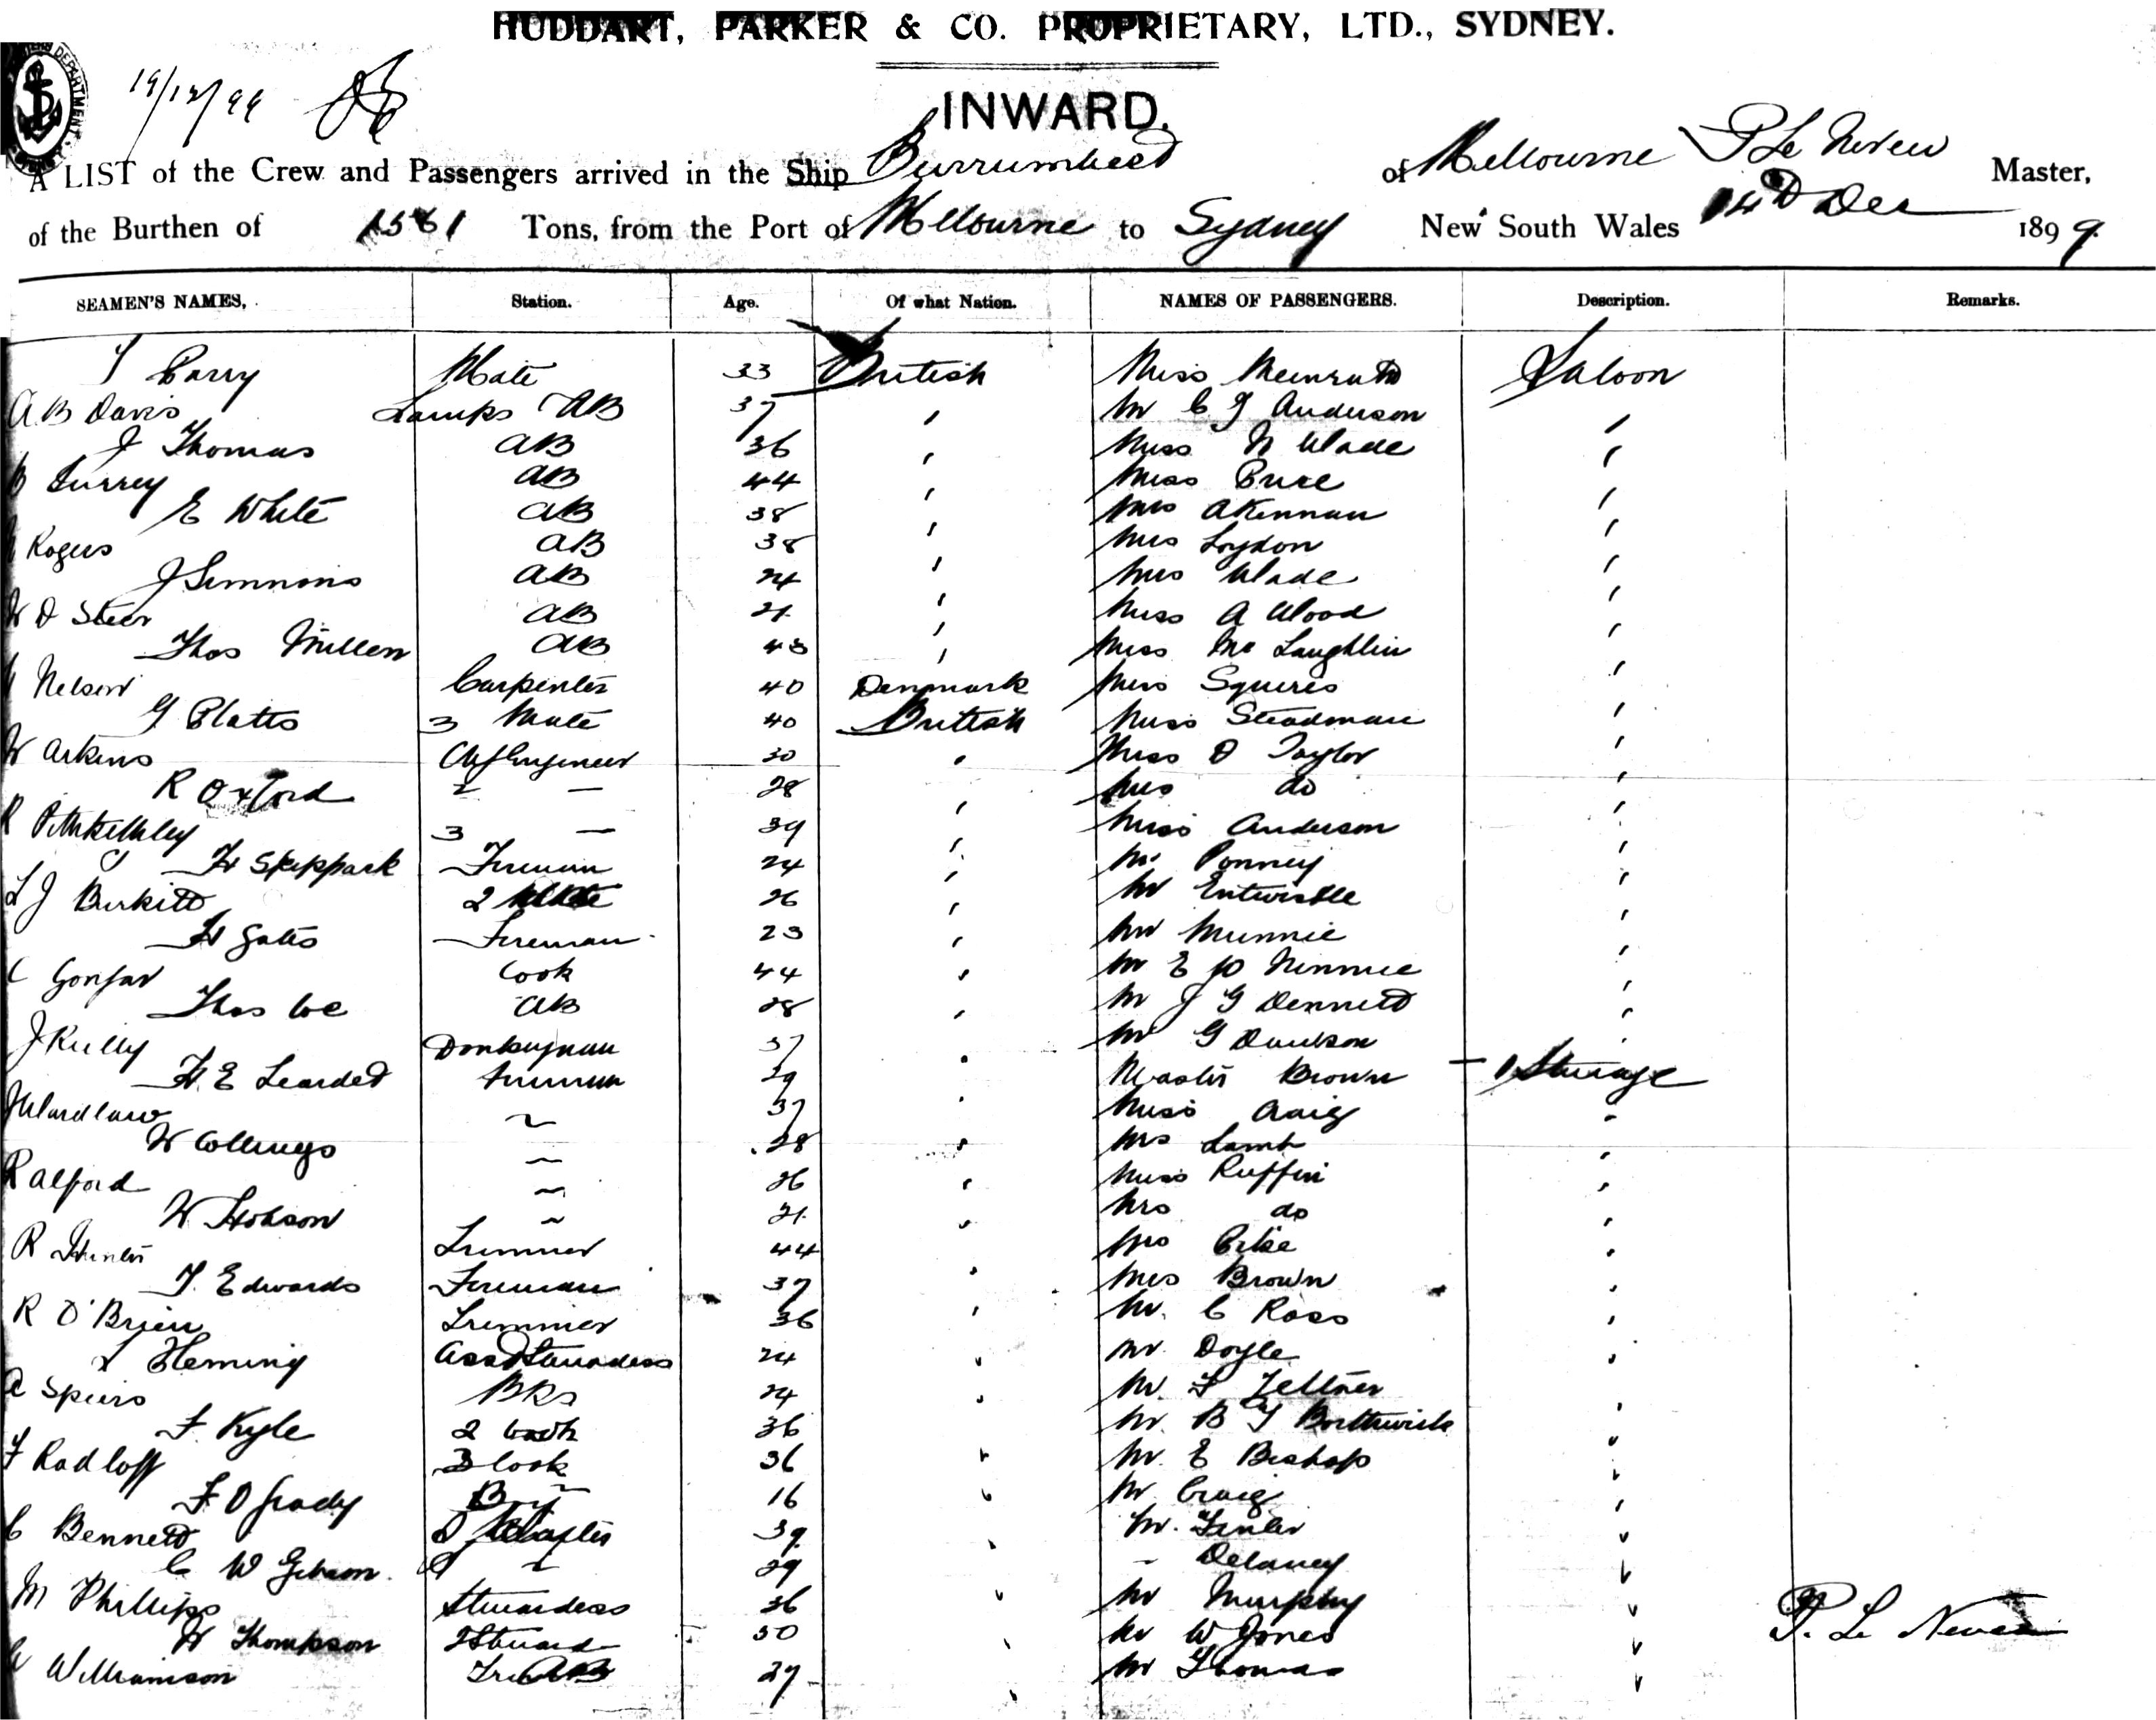 HUDDART, PARKER & CO. PROPRIETARY, LTD., SYDNEY.
19/12/99
INWARD.
A LIST of the Crew and Passengers arrived in the Ship Burrumbeet of Melbourne P Le Neveu Master,
of the Burthen of Tons, from the Port of Melbourne to Sydney New South Wales 14th Dec 1899.
SEAMEN'S NAMES, Station. Age. Of what Nation. NAMES OF PASSENGERS. Description. Remarks.
T Barry Mate 33 British Miss Saloon
A B Davis Lamps AB 37 " Mr C J Anderson "
J Thomas AB 36 " Miss N Wade "
Surrey AB 44 " Miss "
E White AB 38 " A Kennan "
Rogers AB 38 " Mrs Loydon "
J Simmons AB 24 " Mrs Wade "
W D Steer AB 21 " Miss A Wood "
Thos Millen AB 43 " Miss McLaughlin "
Nelson Carpenter 40 Denmark Miss Squires "
G Platts 3 Mate 40 British Miss Steadman "
W Arkins Chf Engineer 30 " Miss D Taylor "
R Oxford 2 — 28 " Mrs do "
R Pitkethley 3 — 39 " Miss Anderson "
H Skeppark Fireman 24 " Mr Ponney "
L J Burkitt 2 Mate 26 " Mr Entwistle "
H Gates Fireman 23 " Mr Munnie "
C Cook 44 " Mr E "
Thos Coe AB 28 " Mr J G Dennett "
J Reilly Donkeyman 37 " Mr G Davidson "
H E Fireman 29 " Master Brown — Steerage
J Wardlaw ~ 37 " Miss Craig "
W Collings ~ 28 " Mrs Lamb "
R Alford ~ 26 " Miss Ruffin "
W Hobson ~ 21 " Mrs do "
R Hunter Trimmer 44 " Mrs "
T. Edwards Fireman 37 " Mrs Brown "
R O'Brien Trimmer 36 " Mr. C Ross "
L Fleming Asst Stewardess 24 " Mr Doyle "
A Speirs BRs 24 " Mr. F Zeltner "
F. Kyle 2 Cook 36 " Mr. B J Borthwick "
F Radloff 3 Cook 36 " Mr. E Bishop "
F. O Grady Boy 16 " Mr Craig "
C Bennett 39 " Mr. "
C W Gibson. 29 " - Delaney "
M Phillips Stewardess 36 " Mr Murphy " P. Le Neveu
W Thompson 2 Steward 50 " Mr W Jones "
Williamson 27 " Mr Thomas "